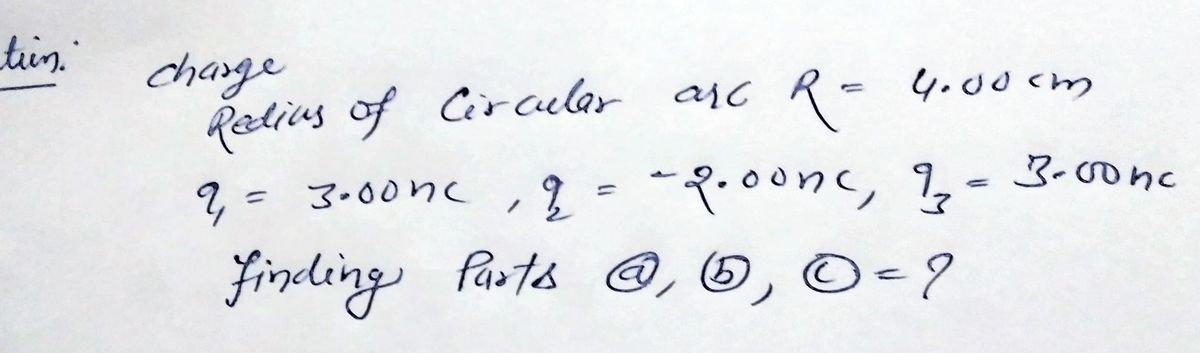 tion:
charge
Redius of Circular arc R = 4.00 cm
q₁ = 3.00nc , q₂ = -2.00nc, q₃ = 3.00nc
finding Parts ⓐ, ⓑ, ⓒ = ?